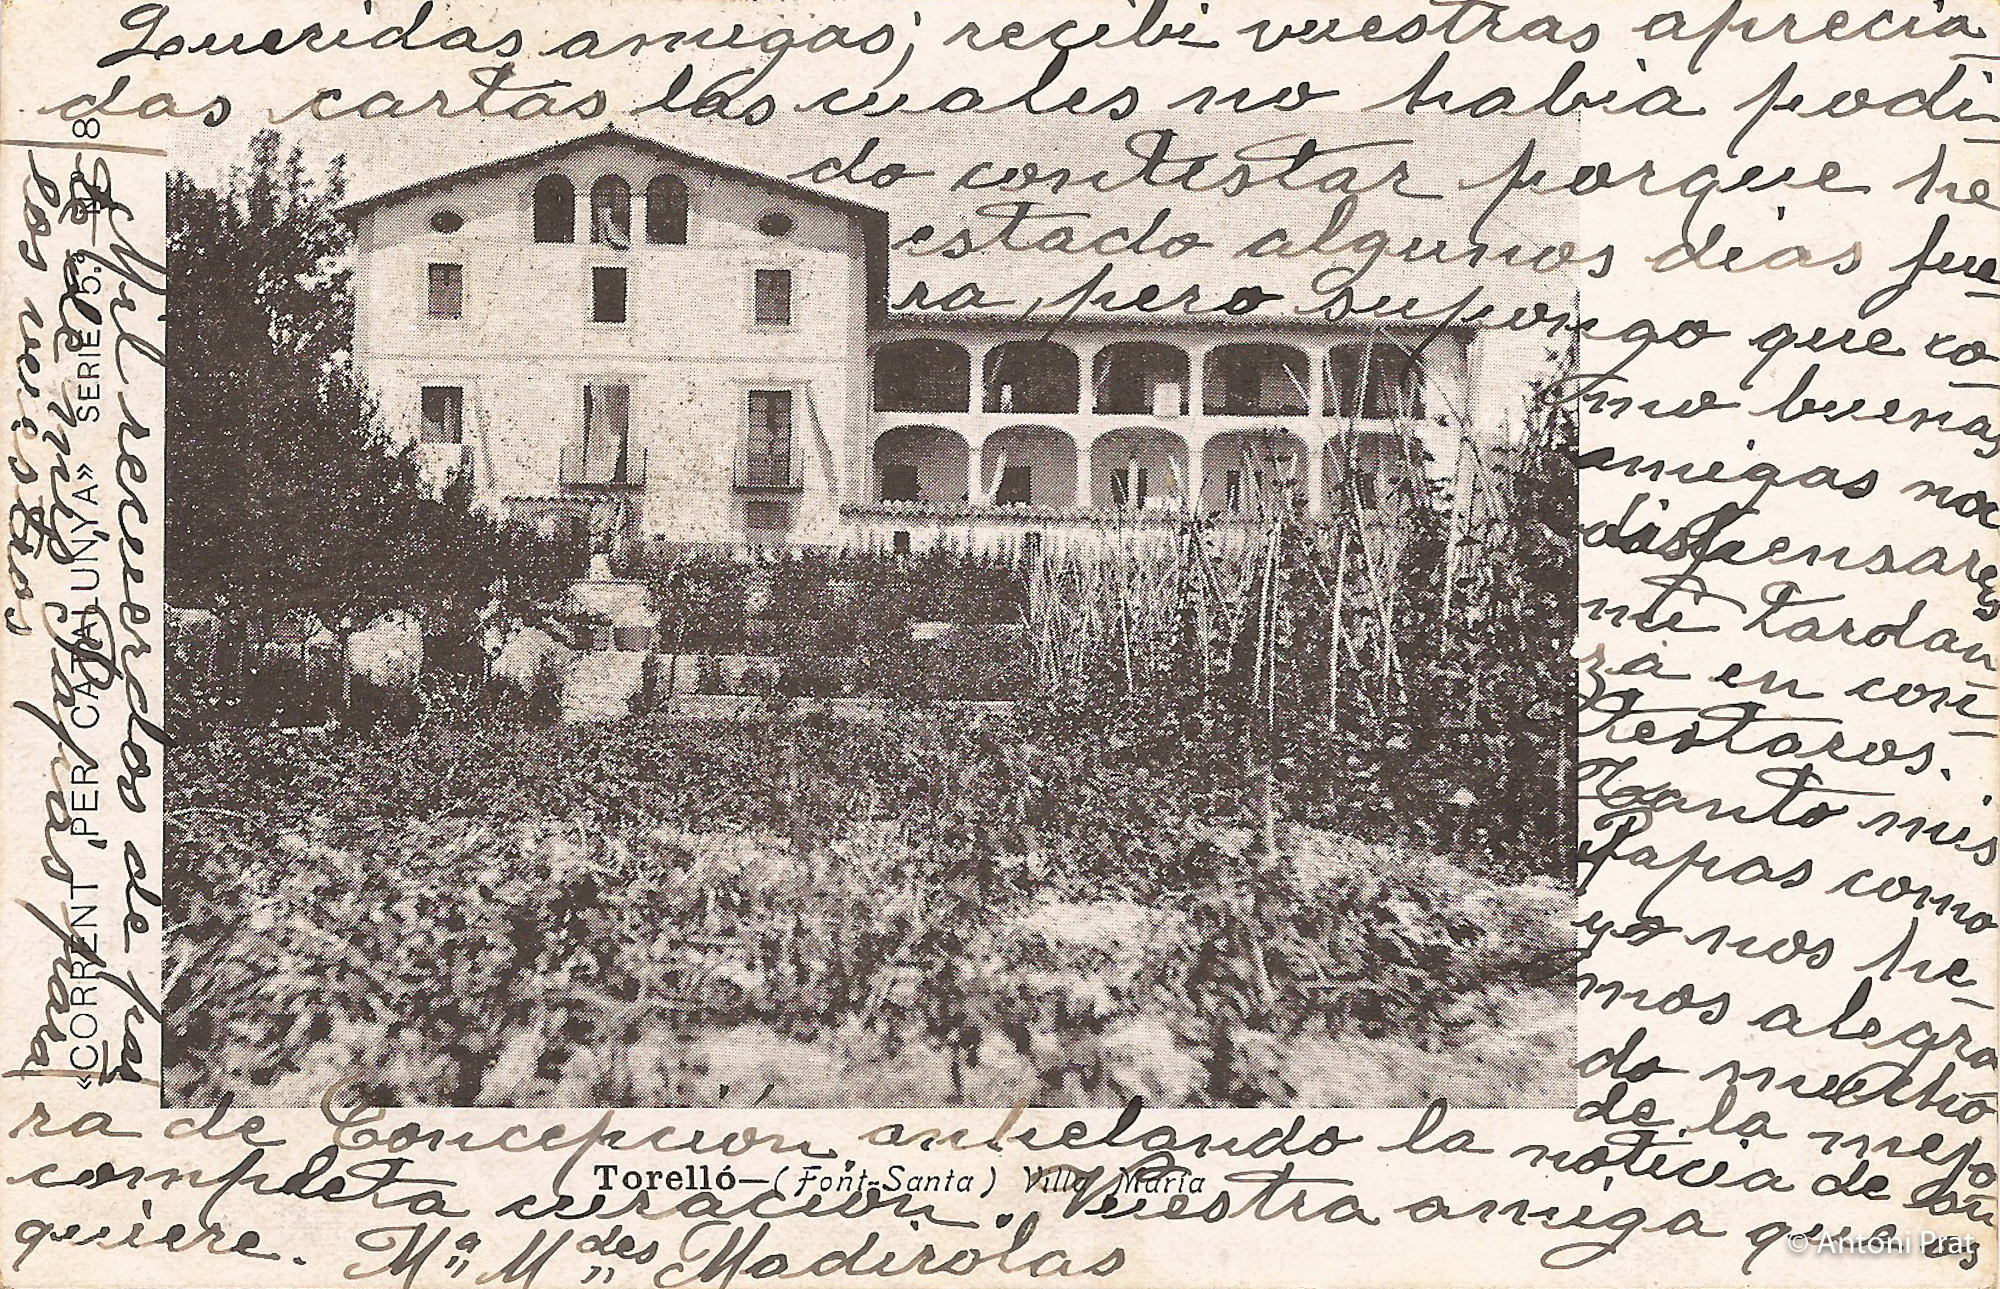 Queridas amigas; recibi vuestras aprecia-
das cartas las cuales no habia podi-
do contestar porque he
estado algunos dias fue-
ra, pero supongo que co-
mo buenas
amigas me
dispensareis
mi tardan-
za en con-
testaros.
Tanto mis
Papas como
yo nos he-
mos alegra
do mucho
de la mejo
ra de Concepción, anhelando la noticia de su
completa curación. Vuestra amiga que os
quiere. Mª Mdes Madirolas
Mil recuerdos de las
de mis Papas para
los vuestros
«CORRENT PER CATALUNYA» SERIE 5.ª 8
Torelló—(Font-Santa) Villa María
© Antoni Prat